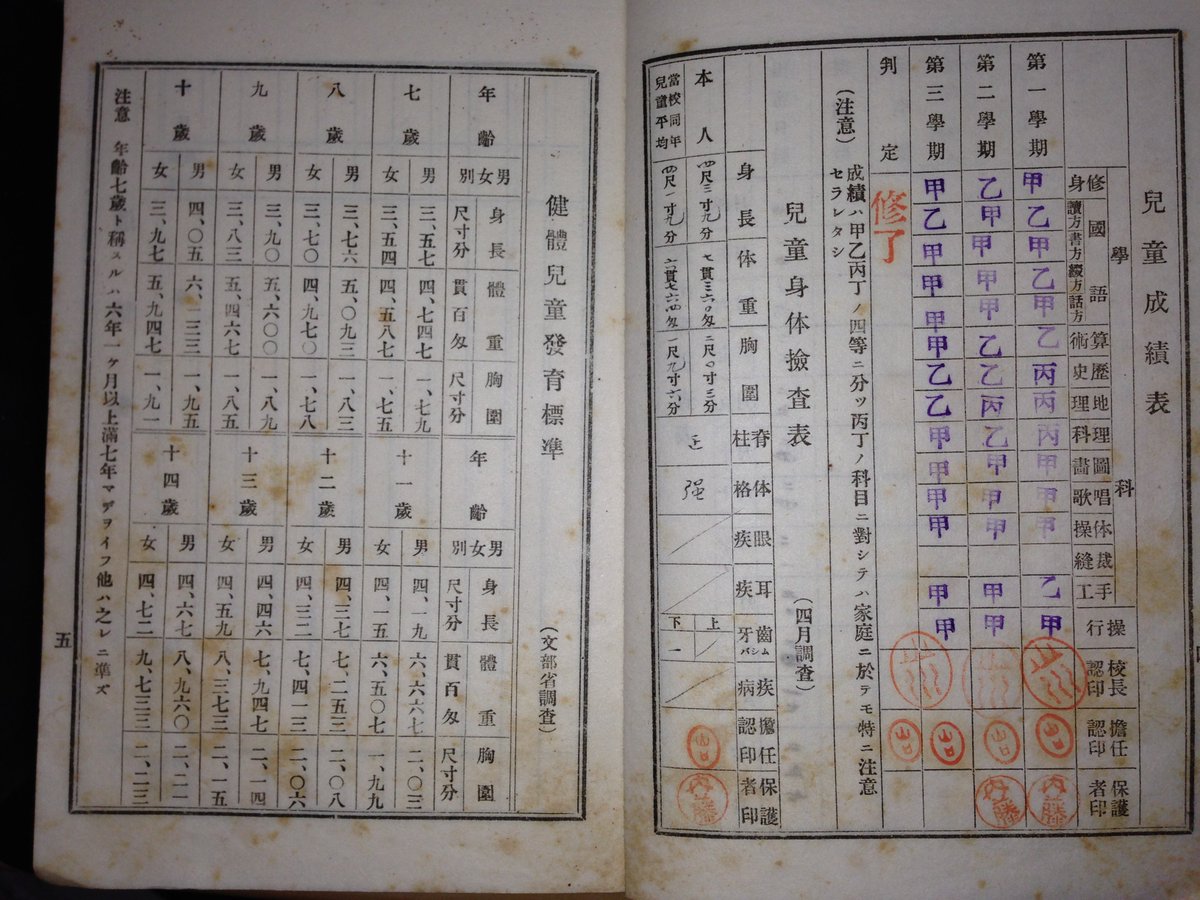 兒童成績表
學科
修身 國語 讀方 書方 綴方 話方 算術 歷史 地理 理科 圖畫 唱歌 体操 裁縫 手工 操行 校長認印 擔任認印 保護者印
第一學期 甲 乙 甲 乙 甲 乙 丙 丙 丙 甲 甲 甲 乙 甲 山口 内藤
第二學期 乙 甲 甲 甲 甲 乙 乙 丙 乙 甲 甲 甲 甲 甲 山口 内藤
第三學期 甲 乙 甲 甲 甲 甲 乙 乙 甲 甲 甲 甲 甲 甲 山口
判定 修了 山口
(注意) 成績ハ甲乙丙丁ノ四等ニ分ツ丙丁ノ科目ニ對シテハ家庭ニ於テモ特ニ注意
セラレタシ
兒童身体撿査表
(四月調査)
身長 体重 胸圍 脊柱 体格 眼疾 耳疾 齒牙ムシバ 疾病 擔任認印 保護者印
本人 四尺三寸九分 七貫三六〇匁 二尺〇寸三分 正 强 上 下 一 山口 内藤
當校同年兒童平均 四尺一寸九分 六貫七六四匁 一尺九寸六分
健體兒童發育標準
(文部省調査)
年齡 男女別 身長 尺寸分 體重 貫百匁 胸圍 尺寸分
七歲 男 三、五七 四、七四七 一、七九
女 三、五四 四、五八七 一、七五
八歲 男 三、七六 五、〇九三 一、八三
女 三、七〇 四、九七〇 一、七八
九歲 男 三、九〇 五、六〇〇 一、八九
女 三、八三 五、四六七 一、八五
十歲 男 四、〇五 六、一三三 一、九五
女 三、九七 五、九四七 一、九一
年齡 男女別 身長 尺寸分 體重 貫百匁 胸圍 尺寸分
十一歲 男 四、一九 六、六六七 二、〇三
女 四、一五 六、五〇七 一、九九
十二歲 男 四、三七 七、二五三 二、〇八
女 四、三二 七、四一三 二、〇六
十三歲 男 四、四六 七、九四七 二、一四
女 四、五九 八、三七三 二、一五
十四歲 男 四、六七 八、九六〇 二、二一
女 四、七二 九、七三三 二、二三
注意 年齡七歲ト稱スルハ六年一ヶ月以上滿七年マデヲイフ他ハ之レニ準ズ
五